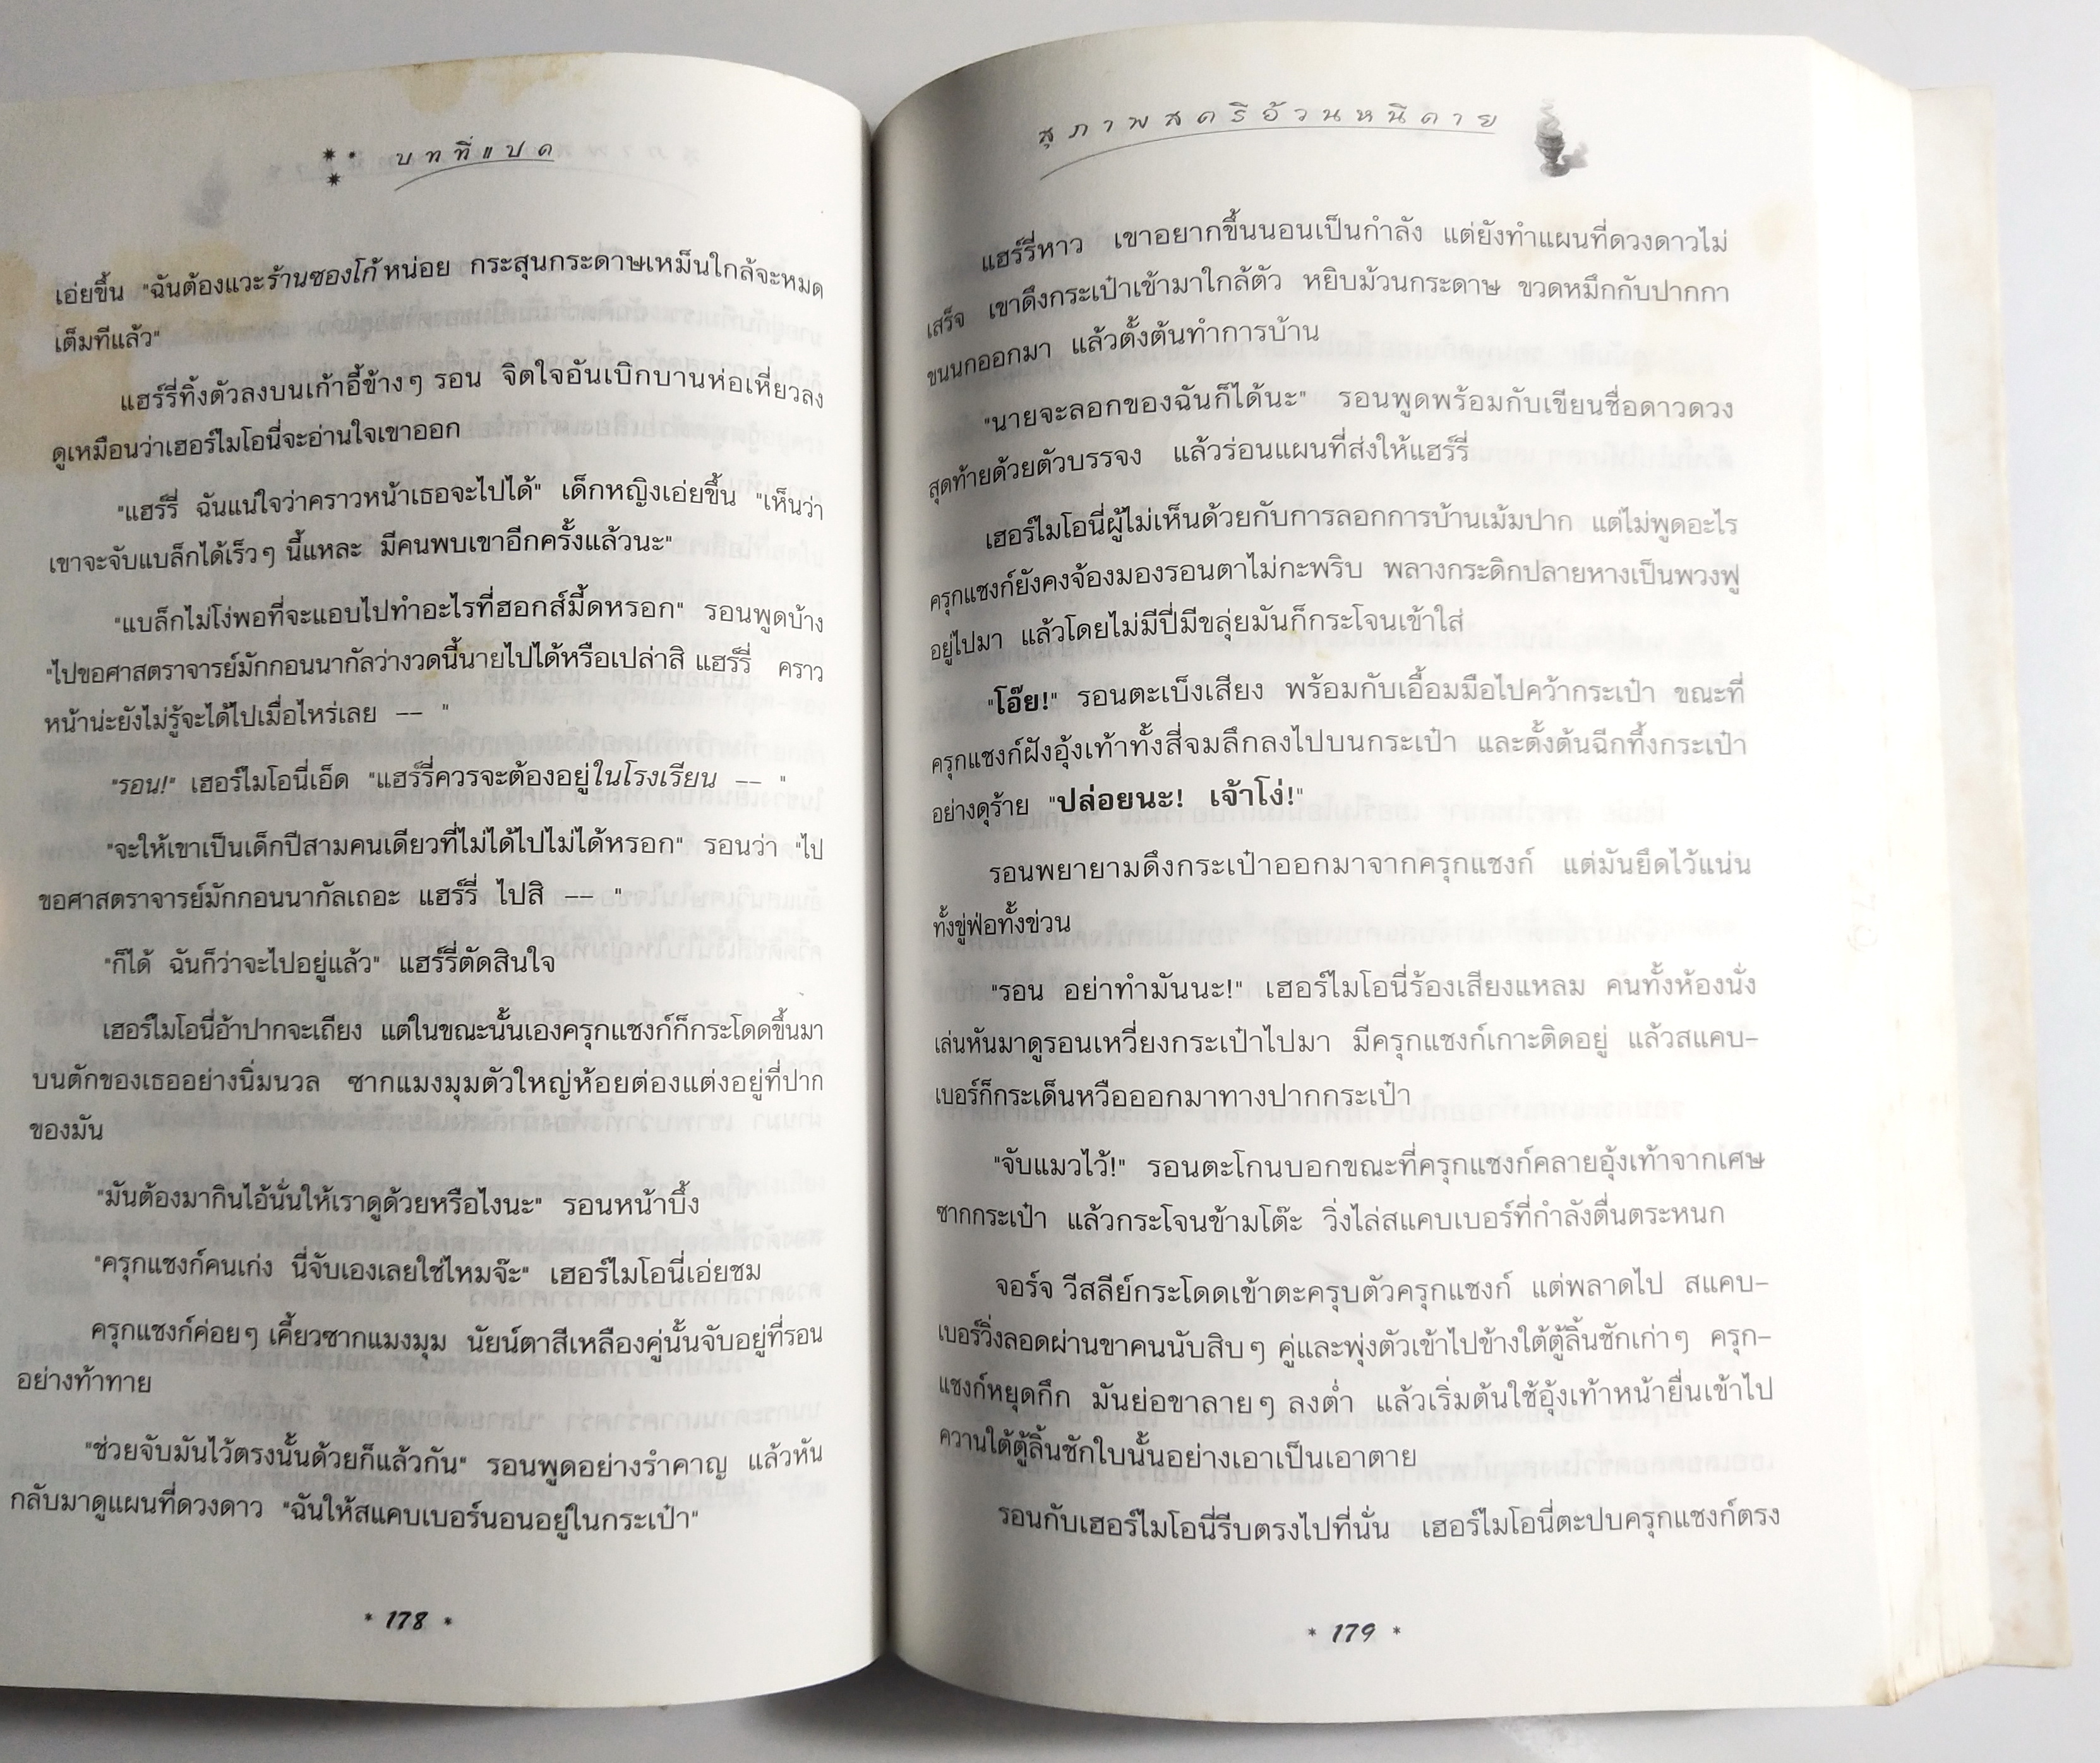 บทที่แปด
เอ่ยขึ้น "ฉันต้องแวะร้านซองโก้หน่อย กระสุนกระดาษเหม็นใกล้จะหมด
เต็มทีแล้ว"
แฮร์รี่ทิ้งตัวลงบนเก้าอี้ข้างๆ รอน จิตใจอันเบิกบานห่อเหี่ยวลง
ดูเหมือนว่าเฮอร์ไมโอนี่จะอ่านใจเขาออก
"แฮร์รี่ ฉันแน่ใจว่าคราวหน้าเธอจะไปได้" เด็กหญิงเอ่ยขึ้น "เห็นว่า
เขาจะจับแบล็กได้เร็วๆ นี้แหละ มีคนพบเขาอีกครั้งแล้วนะ"
"แบล็กไม่โง่พอที่จะแอบไปทำอะไรที่ฮอกส์มี้ดหรอก" รอนพูดบ้าง
"ไปขอศาสตราจารย์มักกอนนากัลว่างวดนี้นายไปได้หรือเปล่าสิ แฮร์รี่ คราว
หน้าน่ะยังไม่รู้จะได้ไปเมื่อไหร่เลย –– "
"รอน!" เฮอร์ไมโอนี่เอ็ด "แฮร์รี่ควรจะต้องอยู่ในโรงเรียน –– "
"จะให้เขาเป็นเด็กปีสามคนเดียวที่ไม่ได้ไปไม่ได้หรอก" รอนว่า "ไป
ขอศาสตราจารย์มักกอนนากัลเถอะ แฮร์รี่ ไปสิ –– "
"ก็ได้ ฉันก็ว่าจะไปอยู่แล้ว" แฮร์รี่ตัดสินใจ
เฮอร์ไมโอนี่อ้าปากจะเถียง แต่ในขณะนั้นเองครุกแชงก์ก็กระโดดขึ้นมา
บนตักของเธออย่างนิ่มนวล ซากแมงมุมตัวใหญ่ห้อยต่องแต่งอยู่ที่ปาก
ของมัน
"มันต้องมากินไอ้นั่นให้เราดูด้วยหรือไงนะ" รอนหน้าบึ้ง
"ครุกแชงก์คนเก่ง นี่จับเองเลยใช่ไหมจ๊ะ" เฮอร์ไมโอนี่เอ่ยชม
ครุกแชงก์ค่อยๆ เคี้ยวซากแมงมุม นัยน์ตาสีเหลืองคู่นั้นจับอยู่ที่รอน
อย่างท้าทาย
"ช่วยจับมันไว้ตรงนั้นด้วยก็แล้วกัน" รอนพูดอย่างรำคาญ แล้วหัน
กลับมาดูแผนที่ดวงดาว "ฉันให้สแคบเบอร์นอนอยู่ในกระเป๋า"
* 178 *
สุภาพสตรีอ้วนหนีตาย
แฮร์รี่หาว เขาอยากขึ้นนอนเป็นกำลัง แต่ยังทำแผนที่ดวงดาวไม่
เสร็จ เขาดึงกระเป๋าเข้ามาใกล้ตัว หยิบม้วนกระดาษ ขวดหมึกกับปากกา
ขนนกออกมา แล้วตั้งต้นทำการบ้าน
"นายจะลอกของฉันก็ได้นะ" รอนพูดพร้อมกับเขียนชื่อดาวดวง
สุดท้ายด้วยตัวบรรจง แล้วร่อนแผนที่ส่งให้แฮร์รี่
เฮอร์ไมโอนี่ผู้ไม่เห็นด้วยกับการลอกการบ้านเม้มปาก แต่ไม่พูดอะไร
ครุกแชงก์ยังคงจ้องมองรอนตาไม่กะพริบ พลางกระดิกปลายหางเป็นพวงฟู
อยู่ไปมา แล้วโดยไม่มีปี่มีขลุ่ยมันก็กระโจนเข้าใส่
"โอ๊ย!" รอนตะเบ็งเสียง พร้อมกับเอื้อมมือไปคว้ากระเป๋า ขณะที่
ครุกแชงก์ฝังอุ้งเท้าทั้งสี่จมลึกลงไปบนกระเป๋า และตั้งต้นฉีกทึ้งกระเป๋า
อย่างดุร้าย "ปล่อยนะ! เจ้าโง่!"
รอนพยายามดึงกระเป๋าออกมาจากครุกแชงก์ แต่มันยึดไว้แน่น
ทั้งขู่ฟ่อทั้งข่วน
"รอน อย่าทำมันนะ!" เฮอร์ไมโอนี่ร้องเสียงแหลม คนทั้งห้องนั่ง
เล่นหันมาดูรอนเหวี่ยงกระเป๋าไปมา มีครุกแชงก์เกาะติดอยู่ แล้วสแคบ–
เบอร์ก็กระเด็นหวือออกมาทางปากกระเป๋า
"จับแมวไว้!" รอนตะโกนบอกขณะที่ครุกแชงก์คลายอุ้งเท้าจากเศษ
ซากกระเป๋า แล้วกระโจนข้ามโต๊ะ วิ่งไล่สแคบเบอร์ที่กำลังตื่นตระหนก
จอร์จ วีสลีย์กระโดดเข้าตะครุบตัวครุกแชงก์ แต่พลาดไป สแคบ–
เบอร์วิ่งลอดผ่านขาคนนับสิบๆ คู่และพุ่งตัวเข้าไปข้างใต้ตู้ลิ้นชักเก่าๆ ครุก–
แชงก์หยุดกึก มันย่อขาลายๆ ลงต่ำ แล้วเริ่มต้นใช้อุ้งเท้าหน้ายื่นเข้าไป
ควานใต้ตู้ลิ้นชักใบนั้นอย่างเอาเป็นเอาตาย
รอนกับเฮอร์ไมโอนี่รีบตรงไปที่นั่น เฮอร์ไมโอนี่ตะปบครุกแชงก์ตรง
* 179 *